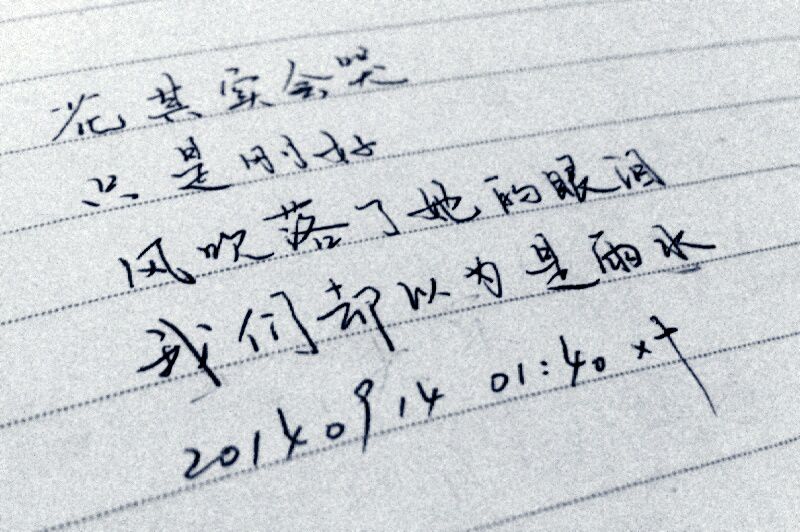 花其实会哭
只是刚好
风吹落了她的眼泪
我们却以为是雨水
20140914 01:40